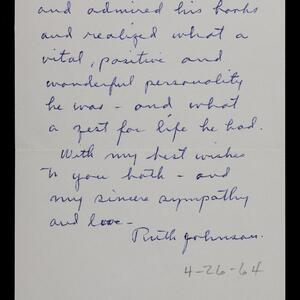 and admired his books
and realized what a
vital, positive and
wonderful personality
he was - and what
a zest for life he had.
With my best wishes
to you both - and
my sincere sympathy
and love -
Ruth Johnson.
4-26-64